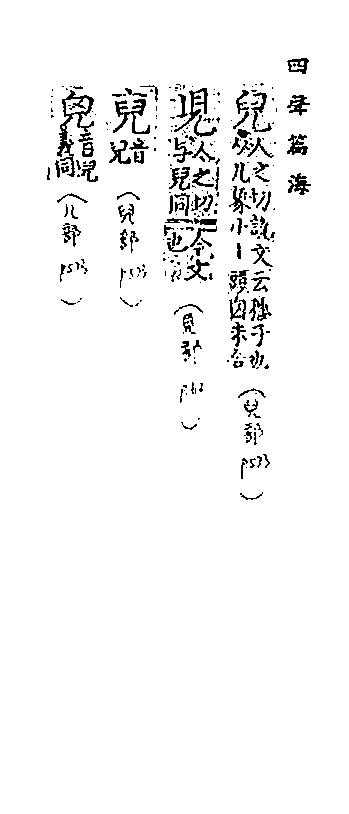 四聲篇海
兒 人之切說文云孺子也
从儿象小兒頭囟未合（兒部p533）
人之切今文
与兒同也（見部p512）
音兒（兒部p533）
音兒義同（儿部p533）